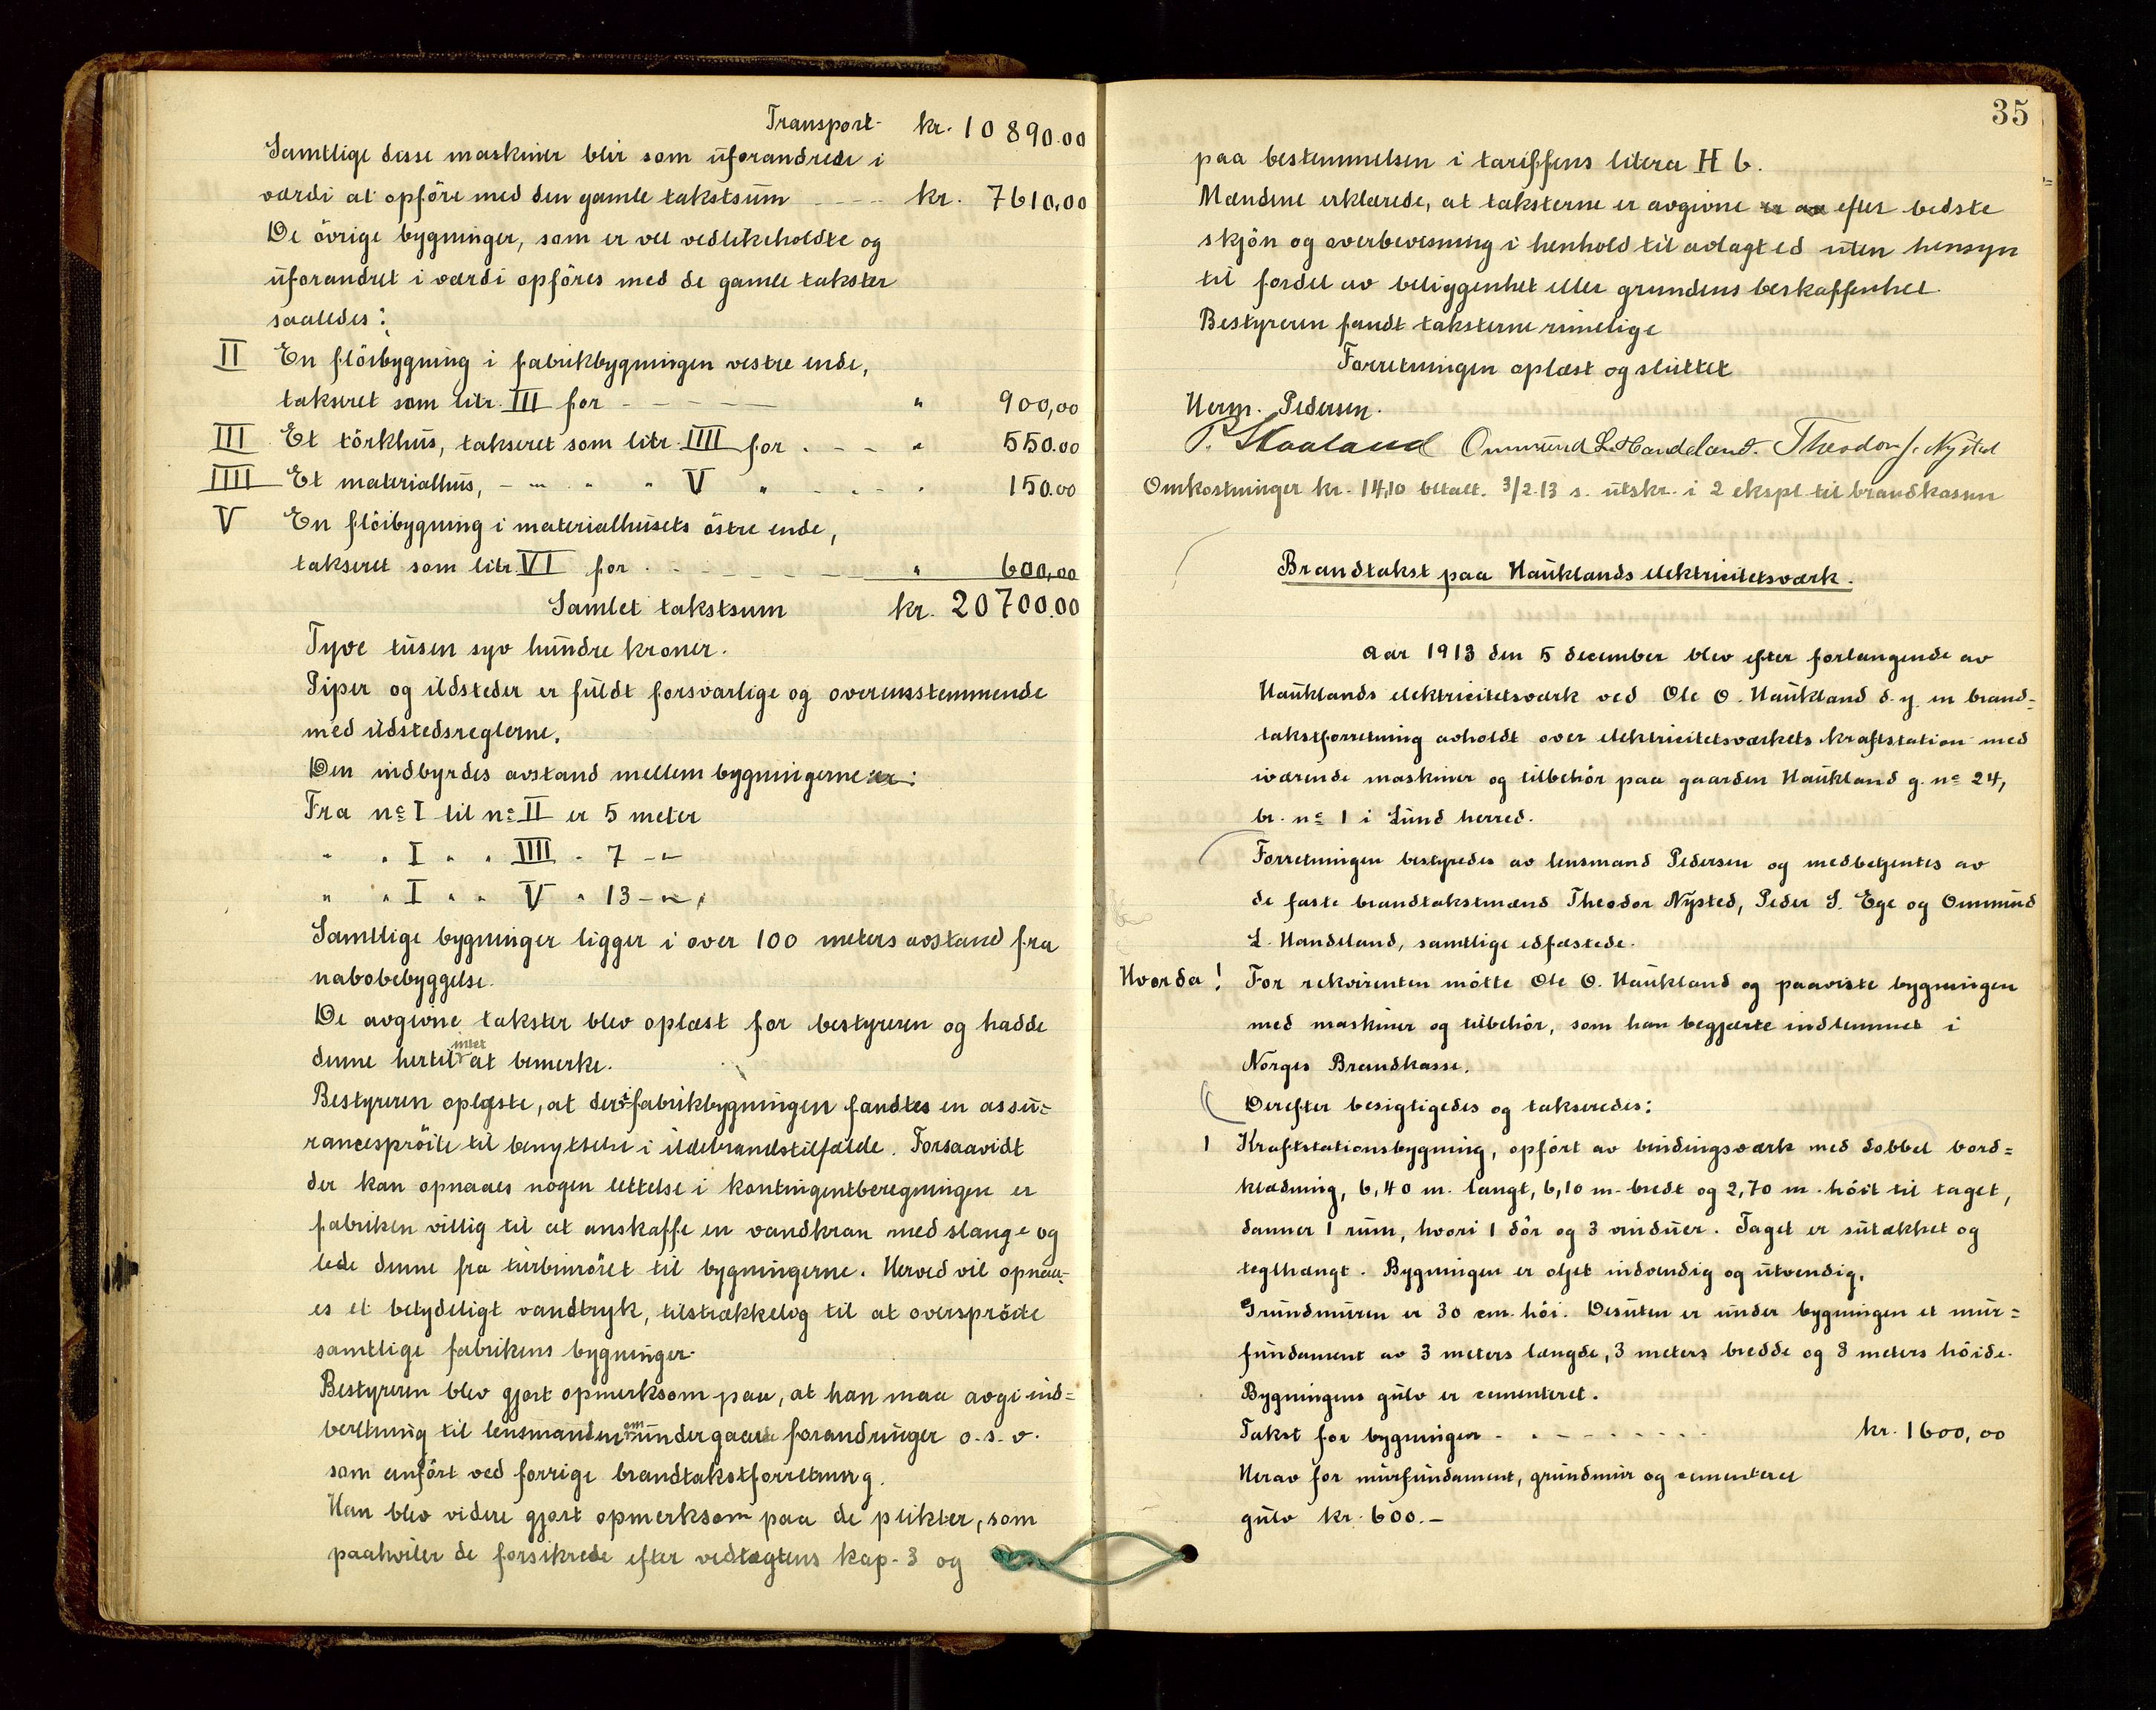 Transport kr. 10890.00
Samtlige disse maskiner blir som uforandrede i
værdi at opføre med den gamle takstsum kr. 7610,00
De øvrige bygninger, som er vel vedlikeholdte og
uforandret i værdi opføres med de gamle takster
saaledes:
II En fløibygning i fabrikbygningen vestre ende,
takseret som litr. III for - - - - " 900,00
III Et tørkhus, takseret som litr. IIII for - - - " 550.00
IIII Et materialhus, - " - " " V " - - - " 150.00
V En fløibygning i materialhusets østre ende,
takseret som litr. VI for - - - - - " 600,00
Samlet takstsum kr. 20700.00
Tyve tusen syv hundre kroner.
Piper og ildsteder er fuldt forsvarlige og overensstemmende
med ildstedsreglerne.
Den indbyrdes avstand mellem bygningerne er:
Fra nº I til nº II er 5 meter
" " I " " IIII " 7 - " -
" " I " " V " 13 - " -
Samtlige bygninger ligger i over 100 meters avstand fra
nabobebyggelse.
De avgivne takster blev oplæst for bestyreren og hadde
denne hertil intet at bemerke.
Bestyreren oplyste, at der i fabrikbygningen fandtes en assu=
rancesprøite til benyttelse i ildebrandstilfælde. Forsaavidt
der kan opnaaes nogen lettelse i kontingentberegningen er
fabriken villig til at anskaffe en vandkran med slange og
lede denne fra turbinrøret til bygningerne. Herved vil opnaa-
es et betydeligt vandtryk, tilstrækkelig til at oversprøite
samtlige fabrikens bygninger.
Bestyreren blev gjort opmerksom paa, at han maa avgi ind=
beretning til lensmanden om undergaaede forandringer o.s.v.
som anført ved forrige brandtakstforretning.
Han blev videre gjort opmerksom paa de plikter, som
paahviler de forsikrede efter vedtægtens kap. 3 og
35
paa bestemmelsen i tariffens litera H 6.
Mændene erklærede, at taksterne er avgivne er av efter bedste
skjøn og overbevisning i henhold til avlagt ed uten hensyn
til fordel av beliggenhet eller grundens beskaffenhet.
Bestyreren fandt taksterne rimelige
Forretningen oplæst og sluttet
Herm. Pedersen.
P. Haaland Ommund L. Handeland. Theodor J. Nysted
Omkostninger kr. 14,10 betalt. 3/2.13 s. utskr. i 2 ekspl til brandkassen
Brandtakst paa Hauklands elektricitetsværk.
Aar 1913 den 5 december blev efter forlangende av
Hauklands elektricitetsværk ved Ole O. Haukland d.y. en brand=
takstforretning avholdt over elektricitetsværkets kraftstation med
iværende maskiner og tilbehør paa gaarden Haukland g. nº 24,
br. nº 1 i Lund herred.
Forretningen bestyredes av lensmand Pedersen og medbetjentes av
de faste brandtakstmænd Theodor Nysted, Peder S. Ege og Ommund
L. Handeland, samtlige edfæstede.
Hvorda! For rekvirenten møtte Ole O. Haukland og paaviste bygningen
med maskiner og tilbehør, som han begjærte indlemmet i
Norges Brandkasse.
Derefter besigtigedes og takseredes:
1 Kraftstationsbygning, opført av bindingsværk med dobbel bord=
klædning, 6,40 m. langt, 6,10 m. bredt og 2,70 m. høit til taget,
danner 1 rum, hvori 1 dør og 3 vinduer. Taget er sutækket og
teglhængt. Bygningen er oljet indvendig og utvendig.
Grundmuren er 30 cm. høi. Desuten er under bygningen et mur=
fundament av 3 meters længde, 3 meters bredde og 3 meters høide.
Bygningens gulv er cementeret.
Takst for bygningen - - - - - - kr. 1600,00
Herav for murfundament, grundmur og cementeret
gulv kr. 600.-